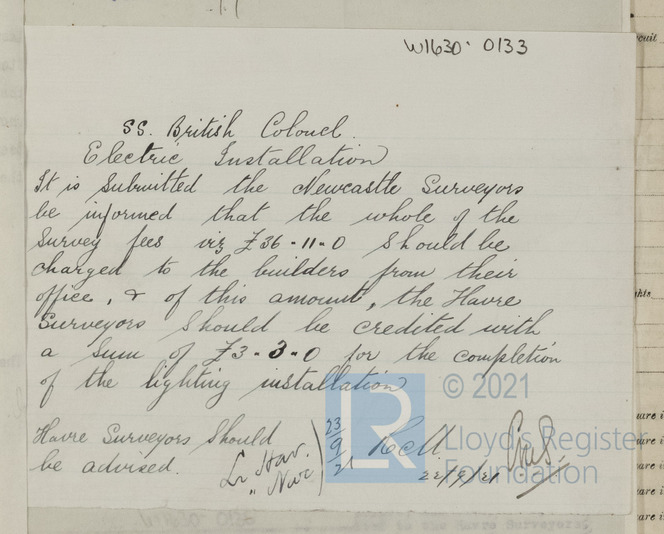 W1630-0133
SS. British Colonel.
Electric Installation
It is submitted the Newcastle Surveyors
be informed that the whole of the
Survey fees viz £36-11-0 should be
charged to the builders from their
office, & of this amount, the Havre
Surveyors should be credited with
a sum of £3-3-0 for the completion
of the lighting installation
Havre Surveyors should
be advised.
Lr Hav.
" Nwc
23/9/21
22/9/21
LR
© 2021
Lloyd's Register
Foundation